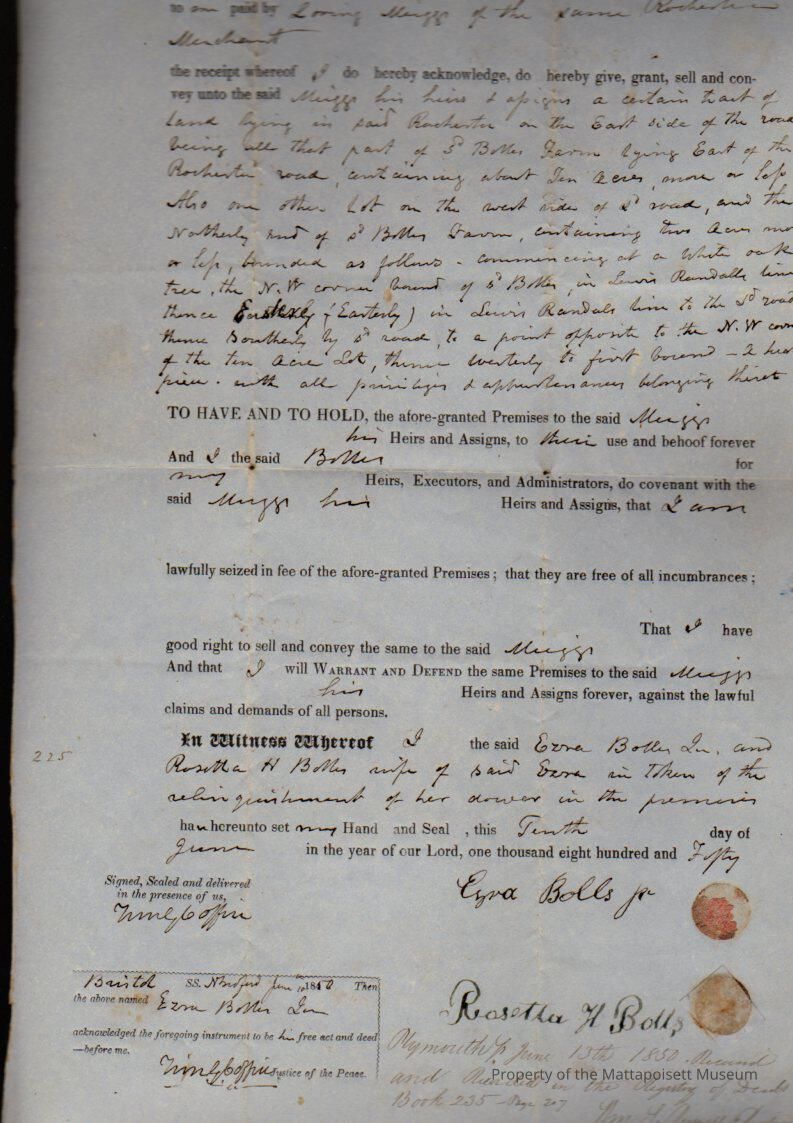 to me paid by Loring Meiggs of the same Rochester
Merchant
the receipt whereof I do hereby acknowledge, do hereby give, grant, sell and con-
vey unto the said Meiggs his heirs & assigns a certain tract of
Land lying in said Rochester on the East side of the road
being all that part of sd Bolles Farm lying East of the
Rochester road, containing about Ten Acres, more or less
Also one other Lot on the west side of sd road, and the
Northerly end of sd Bolles Farm, containing two Acres mo
or less, bounded as follows - commencing at a White oak
tree, the N.W corner bound of sd Bolles, in Lewis Randalls line
thence Easterly (Easterly) in Lewis Randals line to the sd road
thence Southerly by sd road, to a point opposite to the N.W corn
of the ten Acre Lot, thence westerly to first bound -
piece. with all privileges & appurtenances belonging theret
TO HAVE AND TO HOLD, the afore-granted Premises to the said Meiggs
his Heirs and Assigns, to their use and behoof forever
And I the said Bolles for
my Heirs, Executors, and Administrators, do covenant with the
said Meiggs his Heirs and Assigns, that I am
lawfully seized in fee of the afore-granted Premises; that they are free of all incumbrances;
That I have
good right to sell and convey the same to the said Meiggs
And that I will WARRANT AND DEFEND the same Premises to the said Meiggs
his Heirs and Assigns forever, against the lawful
claims and demands of all persons.
In Witness Whereof I the said Ezra Bolles Jn. and
225
Rosetta H Bolles wife of said Ezra in token of the
relinquishment of her dower in the premises
have hereunto set my Hand and Seal, this Tenth day of
June in the year of our Lord, one thousand eight hundred and Fifty
Signed, Sealed and delivered
in the presence of us,
Ezra Bolls Jr
Timo G Coffin
Bristol SS. N Bedford June 10 1850 Then
the above named Ezra Bolles Jn
acknowledged the foregoing instrument to be his free act and deed
—before me.
Timo G Coffin Justice of the Peace.
Rosetta H Bolls
Plymouth ss June 13th 1850 Received
and Recorded in the Registry of Deeds
Book 235 - Page 207
Property of the Mattapoisett Museum